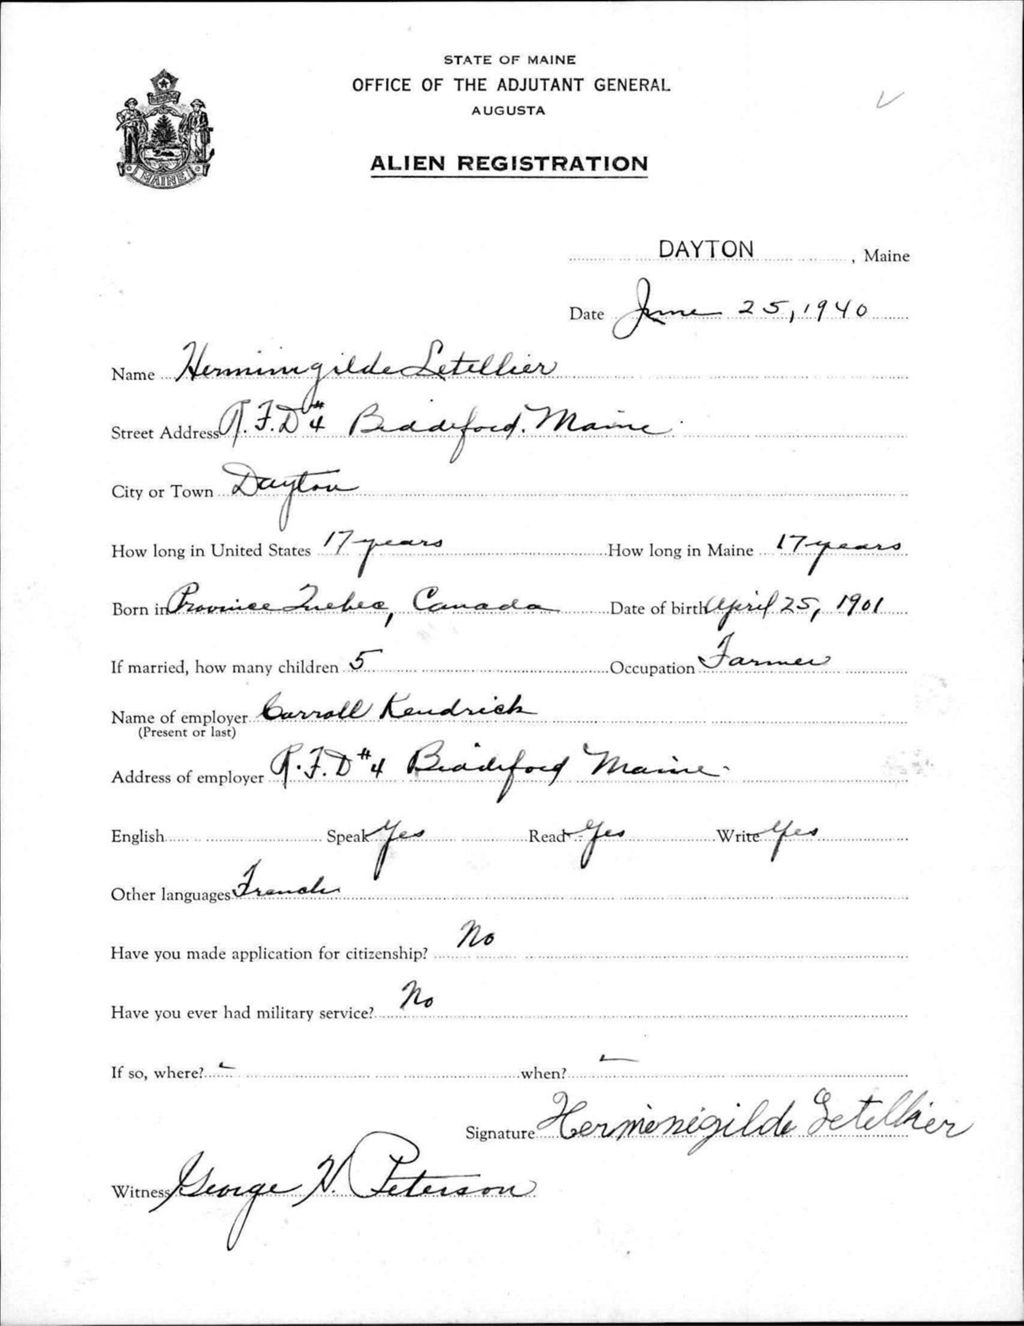 STATE OF MAINE
OFFICE OF THE ADJUTANT GENERAL
AUGUSTA
ALIEN REGISTRATION
MAINE
DAYTON, Maine
Date June 25, 1940
Name Hermimgilde Letellier
Street Address R.F.D #4 Biddeford. Maine
City or Town Dayton
How long in United States 17 years How long in Maine 17 years
Born in Province Quebec, Canada Date of birth April 25, 1901
If married, how many children 5 Occupation Farmer
Name of employer Carroll Kendrick
(Present or last)
Address of employer R.F.D #4 Biddeford Maine
English Speak Yes Read Yes Write Yes
Other languages French
Have you made application for citizenship? No
Have you ever had military service? No
If so, where? - when? -
Signature Hermenegilde Letellier
Witness George H. Peterson